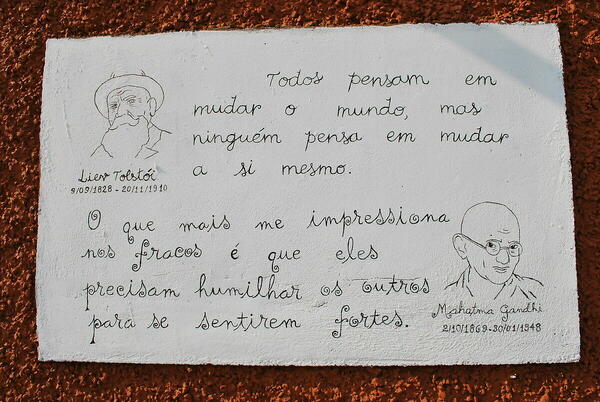 Todos pensam em
mudar o mundo, mas
ninguém pensa em mudar
a si mesmo.
Liev Tolstói
9/09/1828 - 20/11/1910
O que mais me impressiona
nos fracos é que eles
precisam humilhar os outros
para se sentirem fortes.
Mahatma Gandhi
2/10/1869-30/01/1948